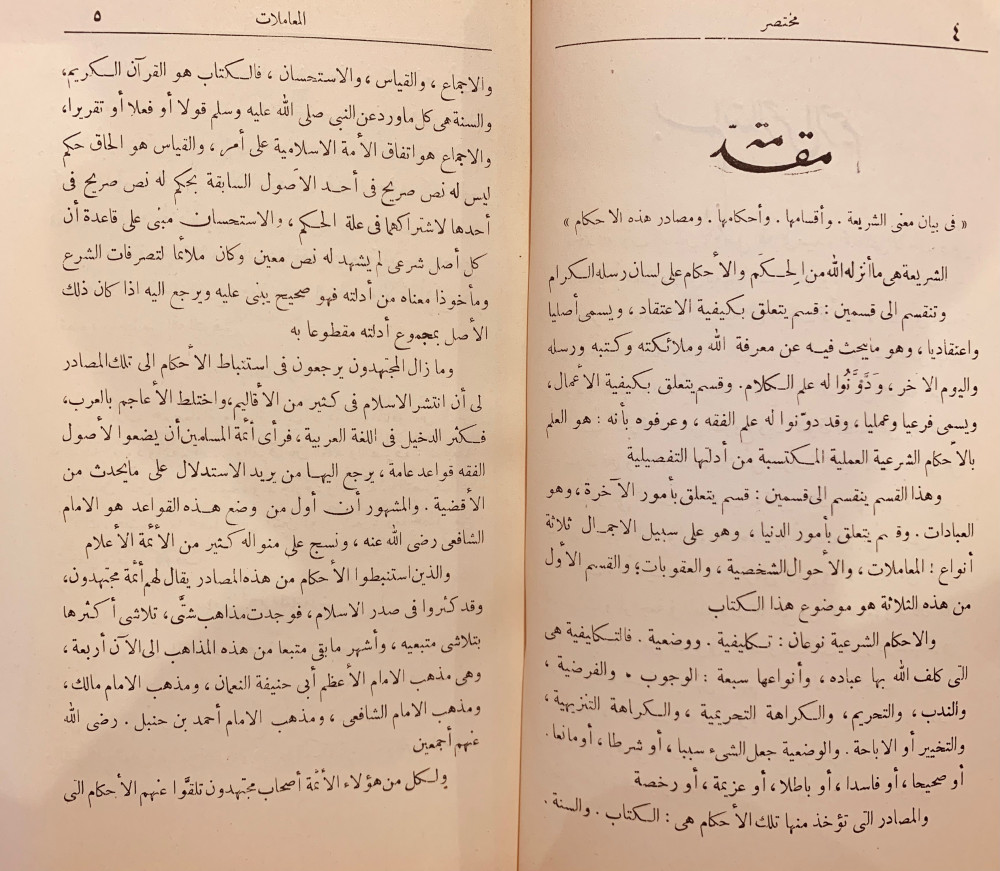 ٤
مختصر
مقدّمة
« فى بيان معنى الشريعة . وأقسامها . وأحكامها . ومصادر هذه الاحكام »
الشريعة هى ما أنزله الله من الحِكَم والأحكام على لسان رسله الكرام
وتنقسم الى قسمين : قسم يتعلق بكيفية الاعتقاد ، ويسمى أصليا
واعتقاديا ، وهو ما يبحث فيه عن معرفة الله وملائكته وكتبه ورسله
واليوم الاخر ، وَدَوَّنُوا له علم الكلام. وقسم يتعلق بكيفية الأعمال،
ويسمى فرعيا وعمليا ، وقد دوّنوا له علم الفقه ، وعرفوه بأنه : هو العلم
بالأحكام الشرعية العملية المكتسبة من أدلتها التفصيلية
وهذا القسم ينقسم الى قسمين : قسم يتعلق بأمور الآخرة ، وهو
العبادات . وقسم يتعلق بأمور الدنيا ، وهو على سبيل الاجمال ثلاثة
أنواع : المعاملات ، والأحوال الشخصية ، والعقوبات؛ والقسم الأول
من هذه الثلاثة هو موضوع هذا الكتاب
والاحكام الشرعية نوعان : تكليفية . ووضعية . فالتكليفية هى
التى كلف الله بها عباده ، وأنواعها سبعة : الوجوب . والفرضية ،
والندب ، والتحريم، والكراهة التحريمية ، والكراهة التنزيهية ،
والتخيير أو الاباحة . والوضعية جعل الشىء سببا ، أو شرطا ، أو مانعا .
أو صحيحا ، أو فاسدا ، أو باطلا ، أو عزيمة ، أو رخصة
والمصادر التى تؤخذ منها تلك الأحكام هى : الكتاب . والسنة .
المعاملات
٥
والاجماع ، والقياس ، والاستحسان ، فالكتاب هو القرآن الكريم،
والسنة هى كل ما ورد عن النبى صلى الله عليه وسلم قولا أو فعلا أو تقريرا،
والاجماع هو اتفاق الأمة الاسلامية على أمر ، والقياس هو الحاق حكم
ليس له نص صريح فى أحد الأصول السابقة بحكم له نص صريح فى
أحدها لاشتراكهما فى علة الحكم ، والاستحسان مبنى على قاعدة أن
كل أصل شرعى لم يشهد له نص معين وكان ملائما لتصرفات الشرع
ومأخوذا معناه من أدلته فهو صحيح يبنى عليه ويرجع اليه اذا كان ذلك
الأصل بمجموع أدلته مقطوعا به
وما زال المجتهدون يرجعون فى استنباط الأحكام الى تلك المصادر
لى أن انتشر الاسلام فى كثير من الأقاليم، واختلط الأعاجم بالعرب،
فكثر الدخيل فى اللغة العربية ، فرأى أئمة المسلمين أن يضعوا لأصول
الفقه قواعد عامة ، يرجع اليها من يريد الاستدلال على ما يحدث من
الأقضية . والمشهور أن أول من وضع هذه القواعد هو الامام
الشافعى رضى الله عنه ، ونسج على منواله كثير من الأئمة الأعلام
والذين استنبطوا الأحكام من هذه المصادر يقال لهم أئمة مجتهدون،
وقد كثروا فى صدر الاسلام ، فوجدت مذاهب شتَّى ، تلاشى أكثرها
بتلاشى متبعيه ، وأشهر ما بقى متبعا من هذه المذاهب الى الآن أربعة ،
وهى مذهب الامام الأعظم أبى حنيفة النعمان ، ومذهب الامام مالك ،
ومذهب الامام الشافعى ، ومذهب الامام أحمد بن حنبل . رضى الله
عنهم أجمعين
ولكل من هؤلاء الأئمة أصحاب مجتهدون تلقَّوا عنهم الأحكام التى